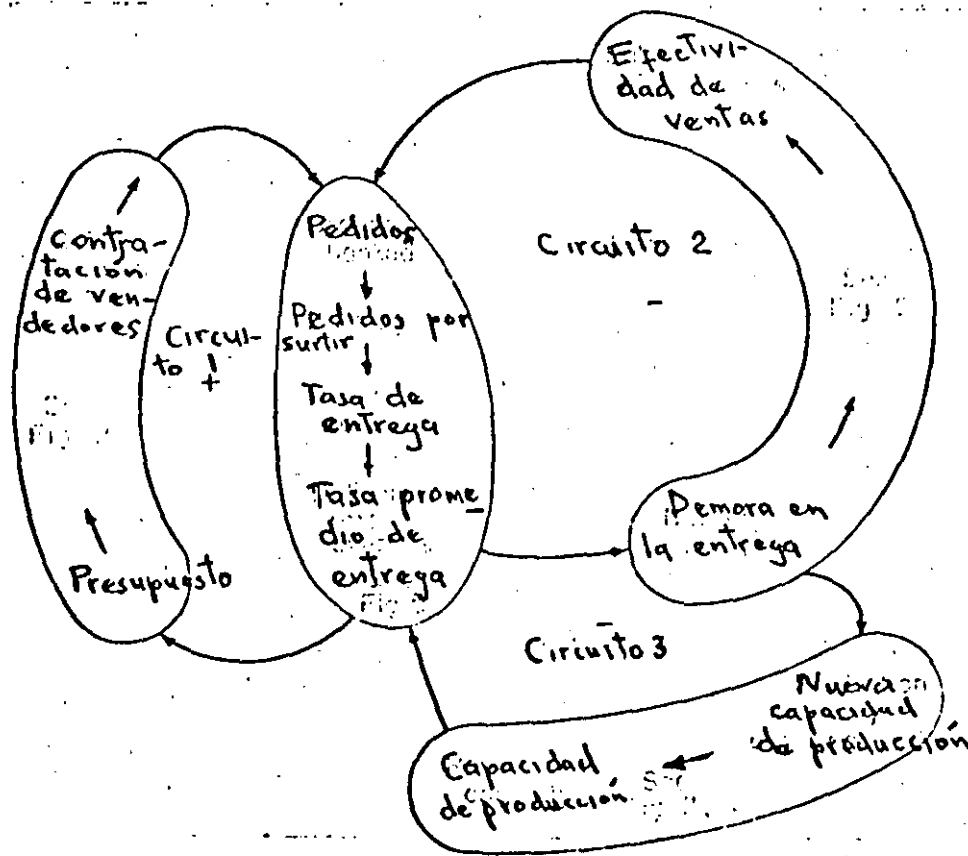 Efectivi-
dad de
ventas
Contra-
tación
de ven-
dedores
Presupuesto
Circui-
to 1
+
Pedidos
Pedidos por
surtir
Tasa de
entrega
Tasa prome
dio de
entrega
Circuito 2
-
Demora en
la entrega
Circuito 3
-
Nueva
capacidad
de producción
Capacidad
de producción